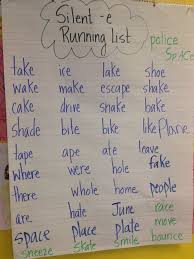 Silent -e
Running list
police
SpAcE
take ice lake shoe
wake make escape shake
cake drive snake base
shade bite bike like
tape ape ate leave
where were hole fake
there whole home people
are hate June race
space place plate move
sneeze skate smile bounce